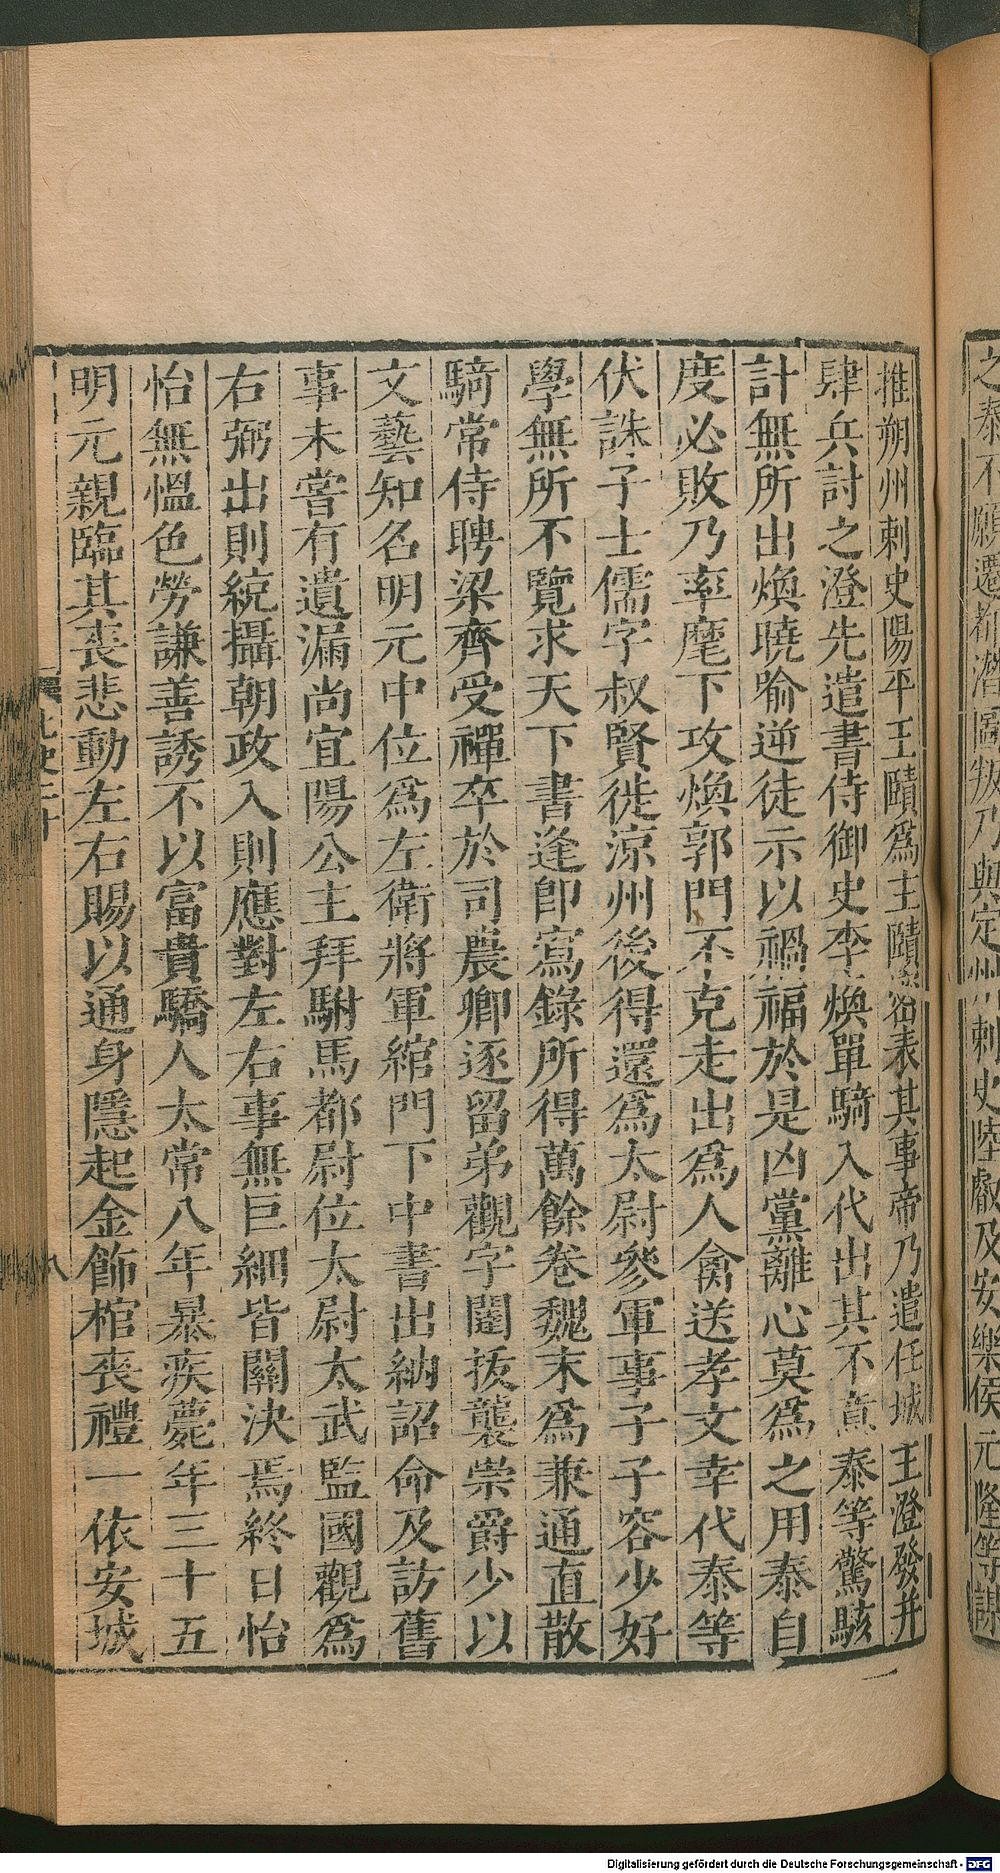 之泰不願遷都潛圖叛乃與定州刺史陸叡及安樂侯元隆等謀
推朔州刺史陽平王頤爲主頤密表其事帝乃遣任城王澄發并
肆兵討之澄先遣書侍御史李煥單騎入代出其不意泰等驚駭
計無所出煥曉喻逆徒示以禍福於是凶黨離心莫爲之用泰自
度必敗乃率麾下攻煥郭門不克走出爲人禽送孝文幸代泰等
伏誅子士儒字叔賢徙涼州後得還爲太尉參軍事子子容少好
學無所不覽求天下書逢卽寫錄所得萬餘卷魏末爲兼通直散
騎常侍聘梁齊受禪卒於司農卿逐留弟觀字闥拔襲崇爵少以
文藝知名明元中位爲左衛將軍綰門下中書出納詔命及訪舊
事未嘗有遺漏尚宜陽公主拜駙馬都尉位太尉太武監國觀爲
右弼出則統攝朝政入則應對左右事無巨細皆關決焉終日怡
怡無慍色勞謙善誘不以富貴驕人太常八年暴疾薨年三十五
明元親臨其喪悲動左右賜以通身隱起金飾棺喪禮一依安城
八
Digitalisierung gefördert durch die Deutsche Forschungsgemeinschaft - DFG